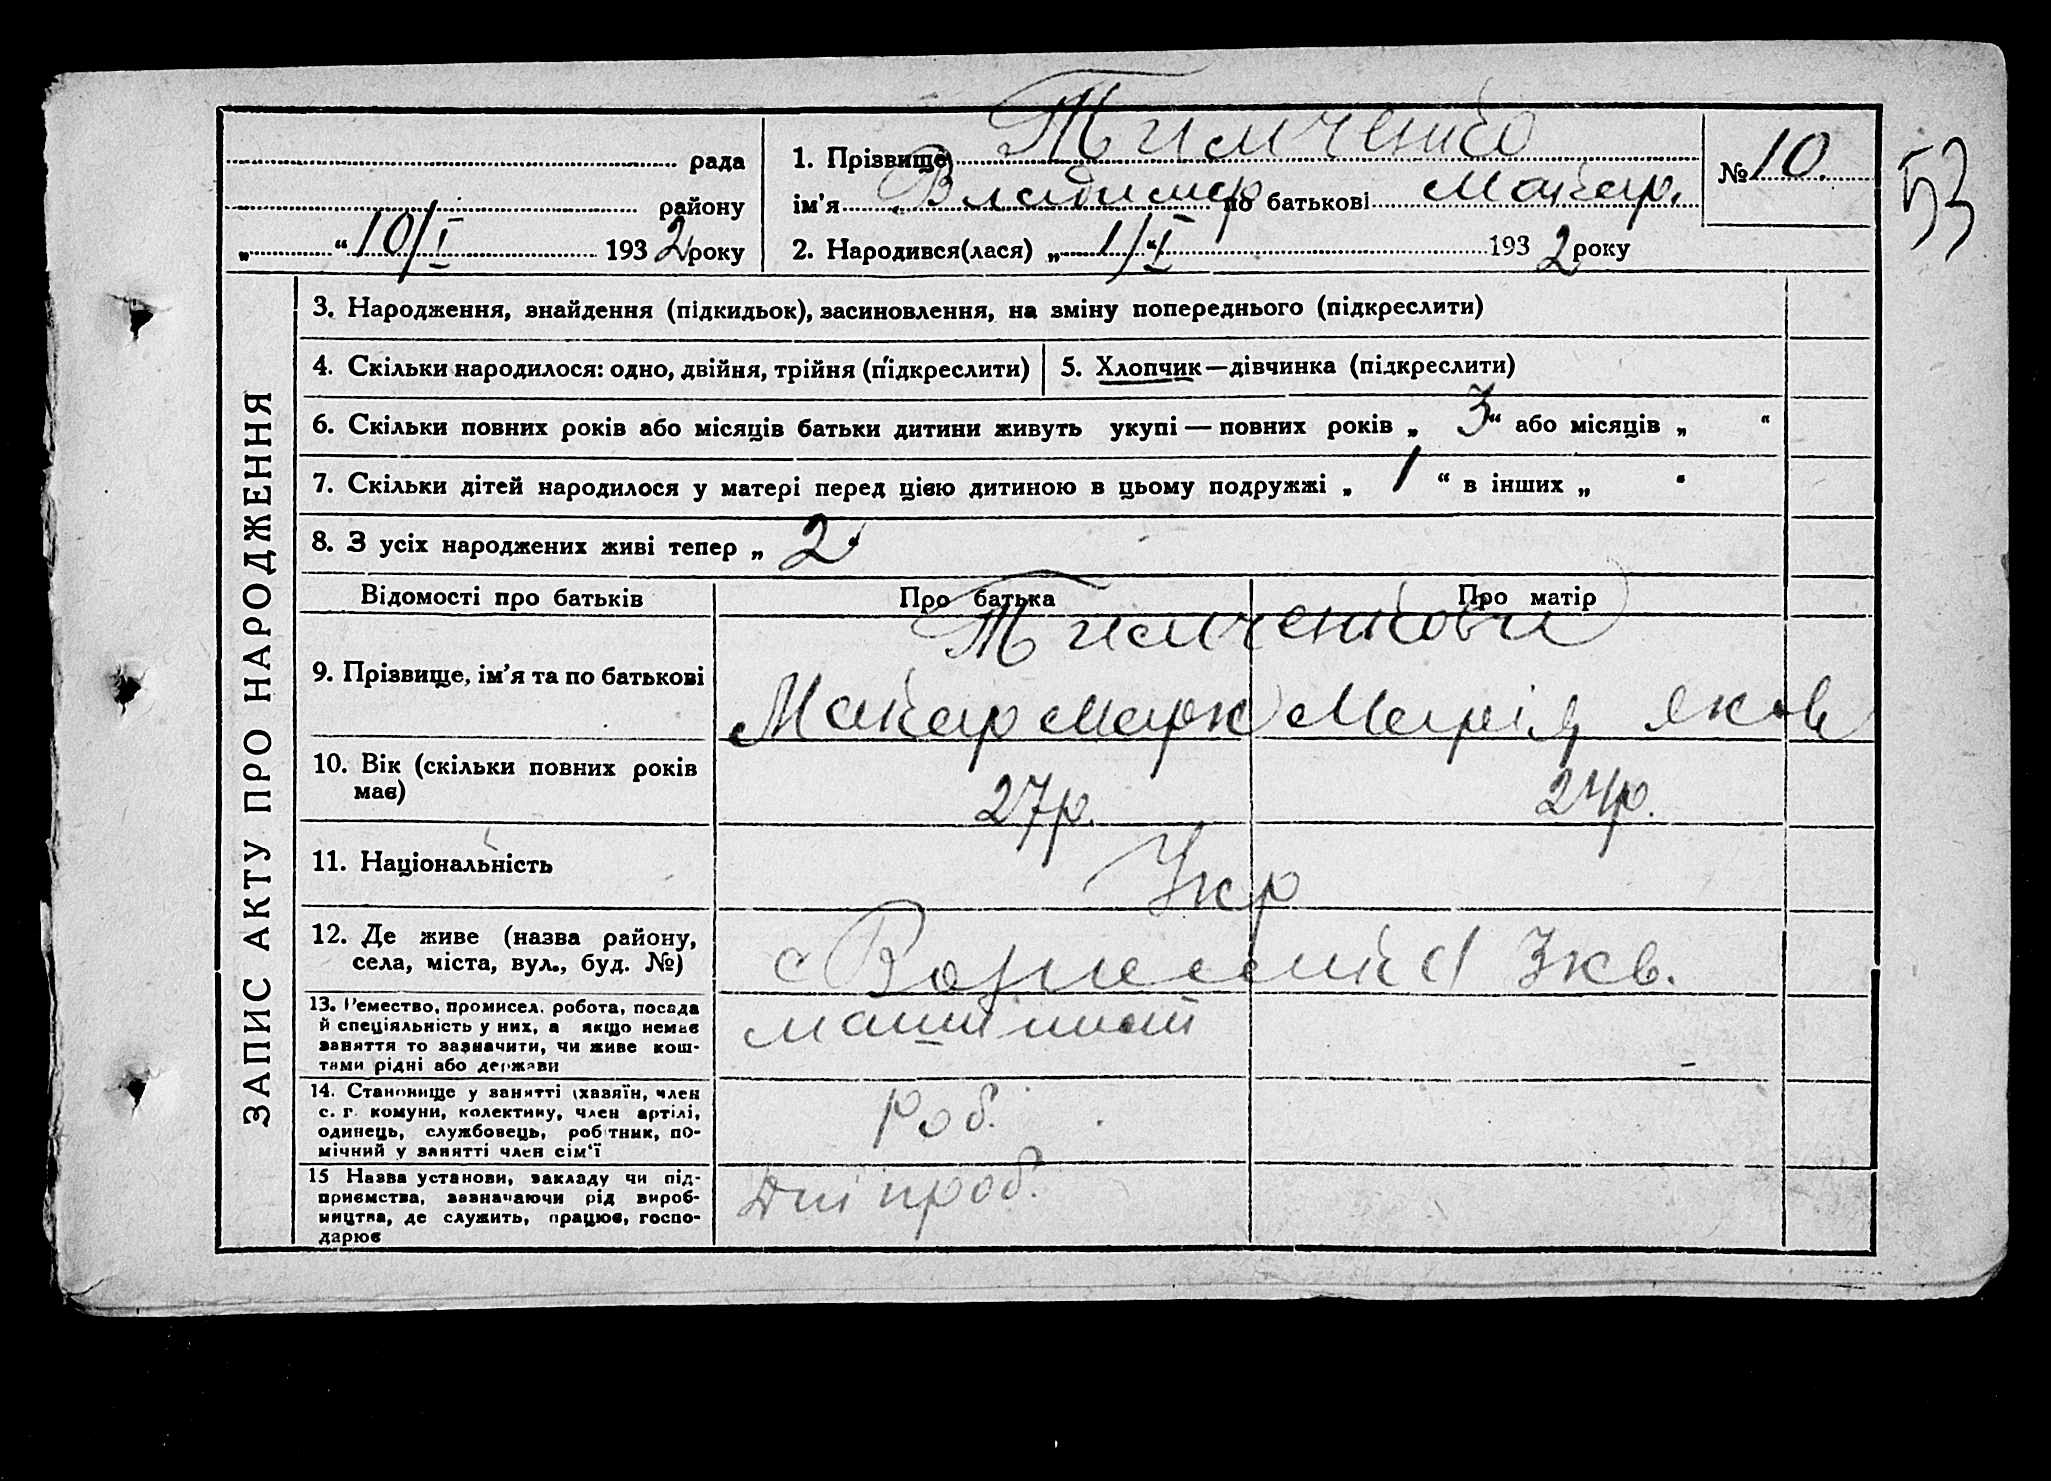 рада
району
„ “ 10/I 1932 року
1. Прізвище Тимченко
ім’я Владимир по батькові Макар.
2. Народився(лася) „ 1/I “ 1932 року
№ 10.
53
ЗАПИС АКТУ ПРО НАРОДЖЕННЯ
3. Народження, знайдення (підкидьок), засиновлення, на зміну попереднього (підкреслити)
4. Скільки народилося: одно, двійня, трійня (підкреслити)
5. Хлопчик—дівчинка (підкреслити)
6. Скільки повних років або місяців батьки дитини живуть укупі — повних років „ 3 “ або місяців „ “
7. Скільки дітей народилося у матері перед цією дитиною в цьому подружжі „ 1 “ в інших „ “
8. З усіх народжених живі тепер „ 2 “
Відомості про батьків
Про батька
Про матір
9. Прізвище, ім’я та по батькові
Тимченкови
Макар Марк
Марія Яковл
10. Вік (скільки повних років
має)
27р.
24р.
11. Національність
Укр
12. Де живе (назва району,
села, міста, вул., буд. №)
с Вознесенка 3кв.
13. Ремество, промисел. робота, посада
й спеціяльність у них, а якщо немає
заняття то зазначити, чи живе кош-
тами рідні або держави
машиніст
14. Становище у занятті (хазяїн, член
с. г. комуни, колективу, член артілі,
одинець, службовець, робітник, по-
мічний у занятті член сім‘ї
Роб.
15 Назва установи, закладу чи під-
приємства, зазначаючи рід вироб-
ництва, де служить, працює, госпо-
дарює
Дніпроб.